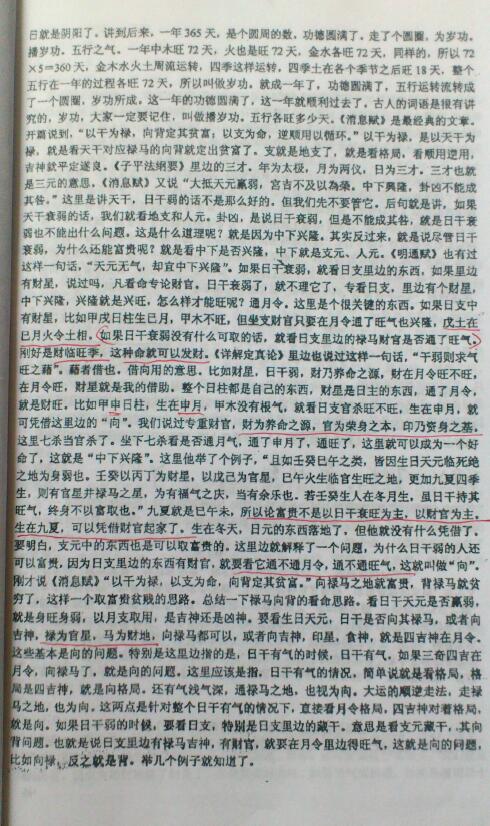 日就是阴阳了。讲到后来，一年365天，是个圆周的数，功德圆满了。走了个圆圈，为岁功。
播岁功。五行之气。一年中木旺72天，火也是旺72天，金水各旺72天，同样的，所以72
×5=360天，金木水火土周流运转，四季这样运转，四季土在各个季节之后旺18天，整个
五行在一年的过程各旺72天，所以叫做岁功。就成一年了，功德圆满了，五行运转流转成
了一个圆圈，岁功所成。这一年的功德圆满了，这一年就顺利过去了。古人的词语是很有讲
究的，岁功，大家一定要记住，叫做播岁功。五行各旺多少天。《消息赋》是最经典的文章。
开篇说到，“以干为禄，向背定其贫富；以支为命，逆顺用以循环。”以干为禄，是以天干为
禄，就是看天干对应禄马的向背就定出贫富了。支就是地支了，就是看格局，看顺用逆用，
吉神就平定遂良。《子平法纲要》里边的三才。年为太极，月为两仪，日为三才。三才也就
是三元的意思，《消息赋》又说“大抵天元羸弱，宫吉不及以为荣。中下兴隆，卦凶不能成
其咎。”这里是讲天干，日干弱的话不是那么好的。但我们先不要管它。后句就是讲。如果
天干衰弱的话，我们就看地支和人元。卦凶，是说日干衰弱，但是不能成其咎，就是日干衰
弱也不能出什么问题。这是什么道理呢？就是因为中下兴隆。其实反过来，就是说尽管日干
衰弱，为什么还能富贵呢？就是看中下是否兴隆，中下就是支元、人元。《明通赋》也有过
这样一句话，“天元无气，却宜中下兴隆”。如果日干衰弱，就看日支里边的东西，如果里边
有财星，说过吗，凡看命专论财官。日干衰弱了，就不理它了，专看日支，里边有个财星，
中下兴隆，兴隆就是兴旺，怎么样才能旺呢？通月令。这里是个很关键的东西。如果日支中
有财星，比如甲戌日柱生巳月，甲木不旺，但坐支财官只要在月令通了旺气也兴隆，戊土在
巳月火令土相。如果日干衰弱没有什么可取的话，就看日支里边的禄马财官是否通了旺气。
刚好是财临旺季，这种命就可以发财。《详解定真论》里边也说过这样一句话，“干弱则求气
旺之藉”。藉者借也。借向用的意思。比如财星，日干弱，财乃养命之源，财在月令旺不旺，
在月令旺，财星就是我的借助。整个日柱都是自己的东西，财星是日主的东西，通了月令，
就是财旺，比如甲申日柱，生在申月，甲木没有根气，就看日支官杀旺不旺，生在申月，就
可凭借这里边的“向”。我们说过专重财官，财为养命之源，官为荣身之本，印乃资身之基，
这里七杀当官杀了。坐下七杀看是否通月气，通了申月了，通旺了，这里就可以成为一个好
命了，这就是“中下兴隆”。这里他举了个例子，“且如壬癸巳午之类，皆因生日天元临死绝
之地为身弱也。壬癸以丙丁为财星，以戊己为官星，巳午火生临官生旺之地，更加九夏四季
生，则有官星并禄马之星，为有福气之庆，当有余乐也。若壬癸生人在冬月生，虽日干持其
旺气，终身不以富取也。”九夏就是巳午未，所以论富贵不是以日干衰旺为主，以财官为主，
生在九夏，可以凭借财官起家了。生在冬天，日元的东西落地了，但他就没有什么凭借了。
要明白，支元中的东西也是可以取富贵的。这里边就解释了一个问题，为什么日干弱的人还
可以富贵，因为日支里边的东西有财官，就要看它通不通月令，通不通旺气，这就叫做“向”。
刚才说《消息赋》“以干为禄，以支为命，向背定其贫富”。向禄马之地就富贵，背禄马就贫
穷了，这样一个取富贵贫贱的思路。总结一下禄马向背的看命思路。看日干天元是否羸弱，
就是身旺身弱，以月支取用，是吉神还是凶神。要看生日天元，日干是否向其禄马，或者向
吉神，禄为官星，马为财地，向禄马都可以，或者向吉神，印星，食神，就是四吉神在月令。
这些基本是向的问题。特别是这里边指的是，日干有气的时候，日干有气。如果三奇四吉在
月令，向禄马了，就是向的问题。这里应该是指。日干有气的情况，简单说就是看格局，格
局是四吉神，就是向格局。还有气浅气深，通禄马之地，也视为向。大运的顺逆走法，走禄
马之地，也为向。这两点是针对整个日干有气的情况下，直接看月令格局，四吉神对着格局，
就是向。如果日干弱的时候，要看日支，特别是日支里边的藏干。意思是看支元藏干，其向
背问题。也就是说日支里边有禄马吉神，有财官，就要在月令里边得旺气，这就是向的问题，
比如向禄，反之就是背。举几个例子就知道了。